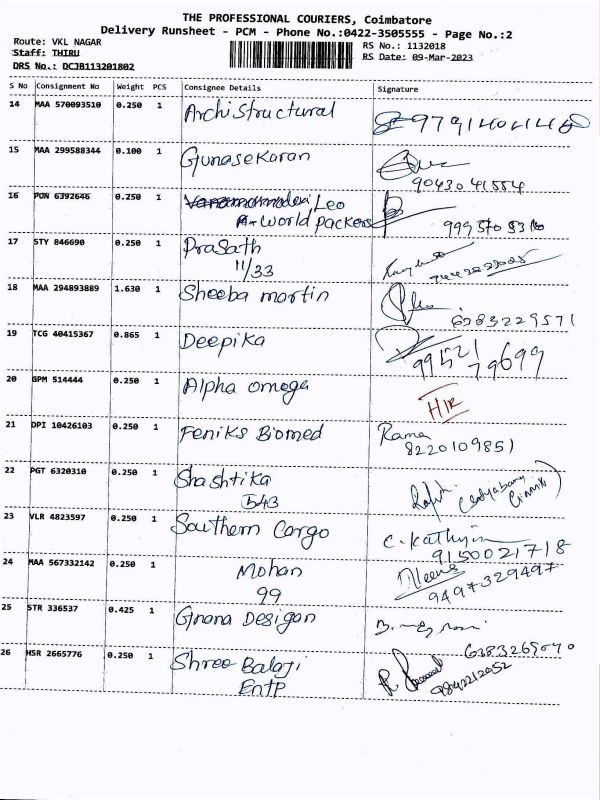 THE PROFESSIONAL COURIERS, Coimbatore
Delivery Runsheet - PCM - Phone No.:0422-3505555 - Page No.:2
Route: VKL NAGAR
Staff: THIRU
DRS No.: DCJB113201802
RS No.: 1132018
RS Date: 09-Mar-2023
S No Consignment No Weight PCS Consignee Details Signature
14 MAA 570093510 0.250 1 Archistructural
15 MAA 299588344 0.100 1 Gunasekaran
9043041554
16 PUN 6392646 0.250 1 Leo
A-world packers
17 STY 846690 0.250 1 Prasath
11/33
18 MAA 294893889 1.630 1 Sheeba martin
6383229571
19 TCG 40415367 0.865 1 Deepika
99521 79699
20 GPM 514444 0.250 1 Alpha omega
21 DPI 10426103 0.250 1 Feniks Biomed Rama
8220109851
22 PGT 6320310 0.250 1 Shashtika
543
23 VLR 4823597 0.250 1 Southern Cargo
9150021718
24 MAA 567332142 0.250 1 Mohan
99
9497329497
25 STR 336537 0.425 1 Gnana Desigan
26 HSR 2665776 0.250 1 Shree Balaji
Entp
9842212952